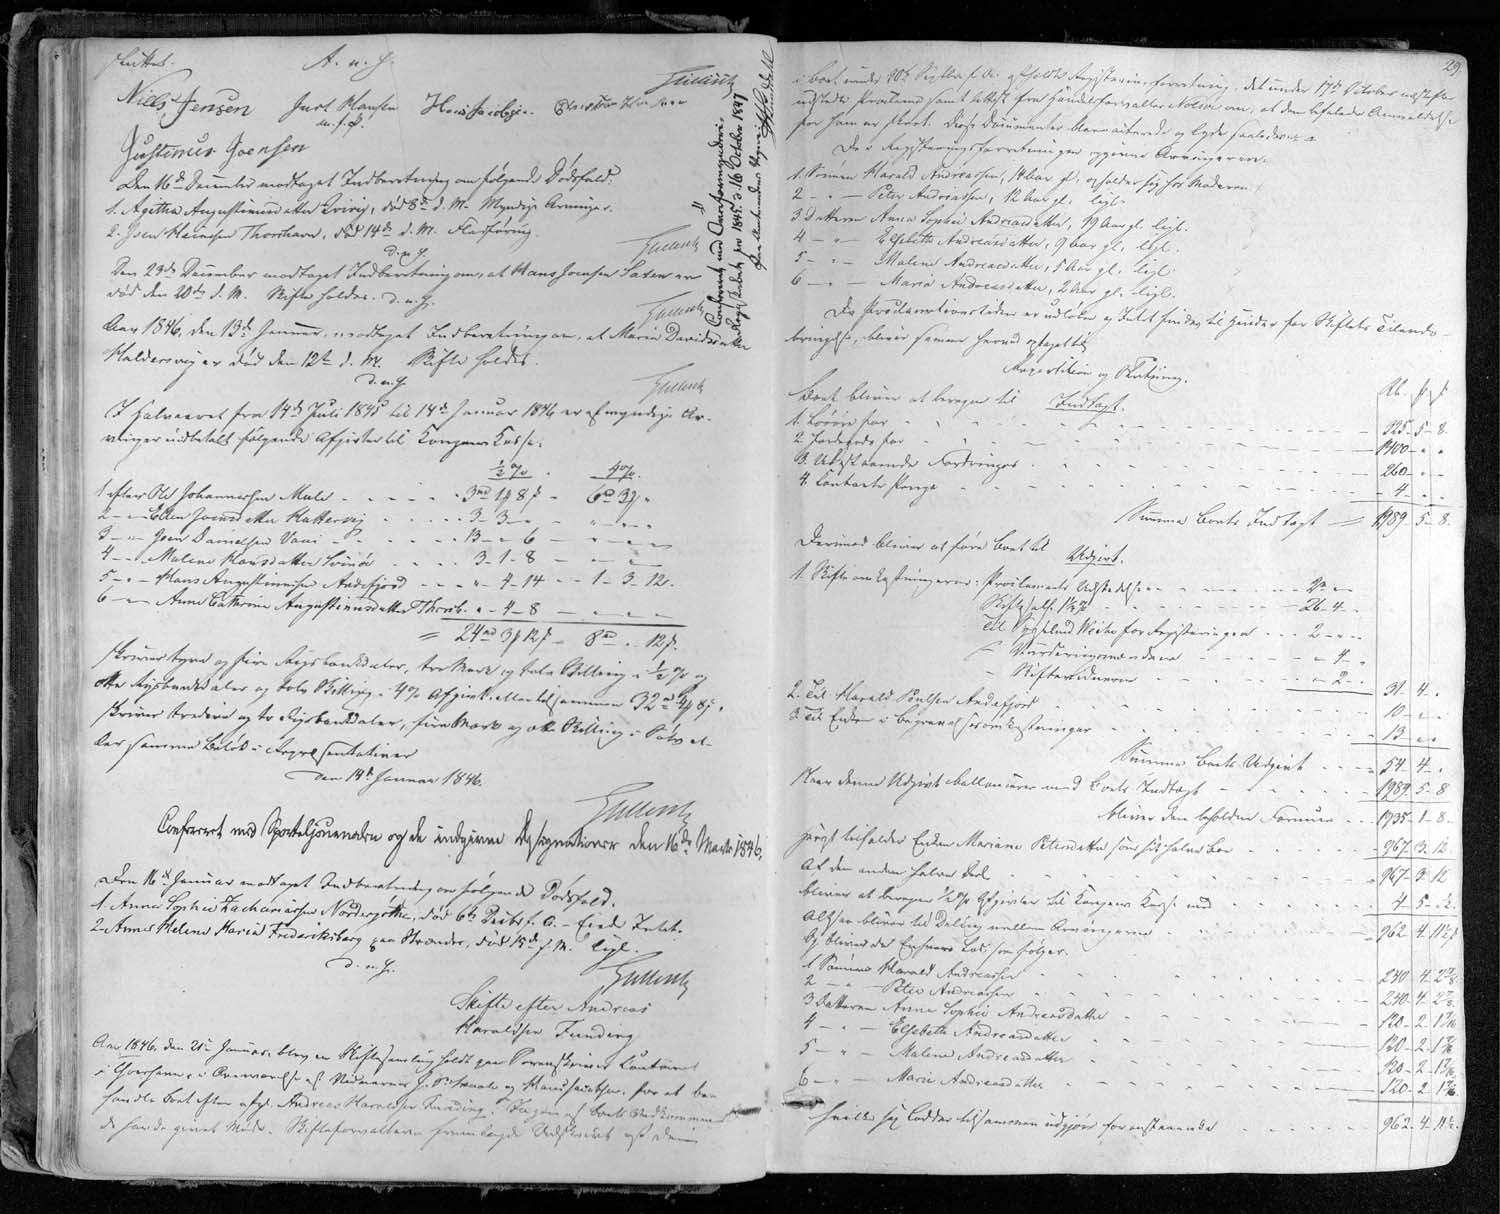 sluttet.
A. u. S.
Niels Jensen Just Hansen Hans Jacobsen
m. f. P.
Justinus Joensen
Den 16de December modtaget Indberetning om følgende Dødsfald:
1. Agatha Augustinusdatter død 8de d. M. Myndige Arvinger.
2. Joen Heinesen Thorshavn, død 14de d. M.
d. u. S.
Den 23de December modtaget Indberetning om, at Hans Joensen er
død den 20de d. M. Skifte holdes. d. u. S.
Aar 1846, den 13de Januar, modtaget Indberetning om, at Maria Davidsdatter
Haldersvig er død den 12te d. M. Skifte holdes.
d. u. S.
I Halvaaret fra 14de Juli 1845 til 14de Januar 1846 er af myndige Ar-
vinger indbetalt følgende Afgifter til Kongens Kasse:
½ % 4 %.
1 efter Ole Johannessen Mule - - - - 3 rd 1 ƒ 8 ß - 6 rd 3 ƒ "
2 - " - Ellen Joensdatter Hattervig - - - - 3 - 3 - "
3 - " - Joen Danielsen - - - - 13 - " 6 - " - " - "
4 - " - Malene Hansdatter Svinø - - - - 3 - 1 - 8 - " - " - "
5 - " - Hans Augustinussen Andefjord - - - " - 4 - 14 - - 1 - 3 - 12.
6 - " - Anne Cathrine Augustinusdatter Thorsh. " - 4 - 8 - " - " - "
= 24 rd 3 ƒ 12 ß - 8 rd " 12 ß.
skriver tyve og fire Rigsbankdaler, tre Mark og tolv Skilling i ½ % og
otte Rigsbankdaler og tolv Skilling i 4 % Afgift eller tilsammen 32 rd 4 ƒ 8 ß.
skriver tredive og to Rigsbankdaler, fire Mark og otte Skilling i Sølv el-
ler samme Beløb i Repræsentativer
den 14de Januar 1846.
Confereret med Sportuljournalen og de indgivne Designationer den 16de Marts 1846.
Den 16de Januar modtaget Indberetning om følgende Dødsfald.
1 Anne Sophie Zachariasen Nordregøthe, død 6te Decbr f. A. - Eied Intet.
2 Anne Helene Maria Frederiksberg paa Strændre, død 15de d. M. ligl.
d. u. S.
Skifte efter Andreas
Haraldsen Funding
Aar 1846, den 21de Januar, blev en Skiftesamling holdt paa Sorenskriver Contoiret
i Thorshavn, i Overværelse af Vidnerne og Hans Jacobsen, for at be-
handle Boet efter afg. Andreas Haraldsen Funding. Ingen af Boets Vedkommende
havde givet Møde. Skifteforvalteren fremlagde Udskrivt af den
Confereret med Overformynderi-
Regnskabet for 1845. d. 16 October 1847
29.
i Boet under 10de Septbr f. A. afholdte Registeringsforretning, det under 17de October næstefter
udstedte Proclama samt Attest fra Handelsforvalter Nolsøe om, at den befalede Anmeldelse
for ham er skeet. Disse Documenter blev acterede og lyde saaledes:
Da i Registeringsforretningen opgives Arvingerne.
1. Sønnen Harald Andreassen, 14 Aar gl. opholder sig hos Moderen
2 - " - Peter Andreassen, 12 Aar gl. ligl.
3 Datteren Anna Sophie Andreasdatter, 19 Aar gl. ligl.
4 - " - Elsebeth Andreasdatter, 9 Aar gl. ligl.
5 - " - Malene Andreasdatter, 5 Aar gl. ligl.
6 - " - Maria Andreasdatter, 2 Aar gl. ligl.
Da Proclamationstiden er udløben og Intet findes til Hinder for Skiftets Tilende-
bringelse, bliver samme herved optaget til
Repartition og Slutning.
Rb. ƒ ß
Boet bliver at beregne til Indtægt.
1. Løsøre for - - - - 325 - 5 - 8.
2. Jordegods for - - - - 1400 - " - "
3. Udestaaende Fordringer - - - - 260 - " - "
4. Contante Penge - - - - 4 - " - "
Summa Boets Indtægt = 1989 - 5 - 8.
Derimod bliver at føre Boet til Udgivt.
1. Skifteomkostningerne: Proclamaets Udstedelse - - - 2 rd " -
Skiftesalær 1⅓ % - - - 26 - 4 -
Til Sysselmd Weihe for Registeringen - - - 2 - " -
- Vurderingsmændene - - - " 4 - "
- Skiftevidnerne - - - " 2 - "
31 - 4 - "
2. Til Harald Poulsen Andefjord - - - 10 - " - "
3. Til Enken i Begravelsesomkostninger - - - 13 - " - "
Summa Boets Udgivt - - - 54 - 4 - "
Naar denne Udgivt balancerer med Boets Indtægt - - - 1989 - 5 - 8
bliver den beholdne Formue - - - 1935 - 1 - 8.
hvoraf tilfalder Enken Mariane Petersdatter som sit halve Boe - - - 967 - 3 - 12
Af den anden halve Deel - - - 967 - 3 - 12
bliver at beregne ½ % Afgivter til Kongens Kasse med - - - 4 - 5 - ½.
Altsaa bliver til Deling mellem Arvingerne - - - 962 - 4 - 11½
Og bliver da Enhvers Lod som følger.
1 Sønnen Harald Andreassen - - - 240 - 4 - 2⅞
2 - " - Peter Andreassen - - - 240 - 4 - 2⅞
3 Datteren Anne Sophie Andreasdatter - - - 120 - 2 - 1 7/16
4 - " - Elsebeth Andreasdatter - - - 120 - 2 - 1 7/16
5 - " - Malene Andreasdatter - - - 120 - 2 - 1 7/16
6 - " - Marie Andreasdatter - - - 120 - 2 - 1 7/16
hvilke sex Lodder tilsammen udgjør foranstaaende - - - 962 - 4 - 11½.